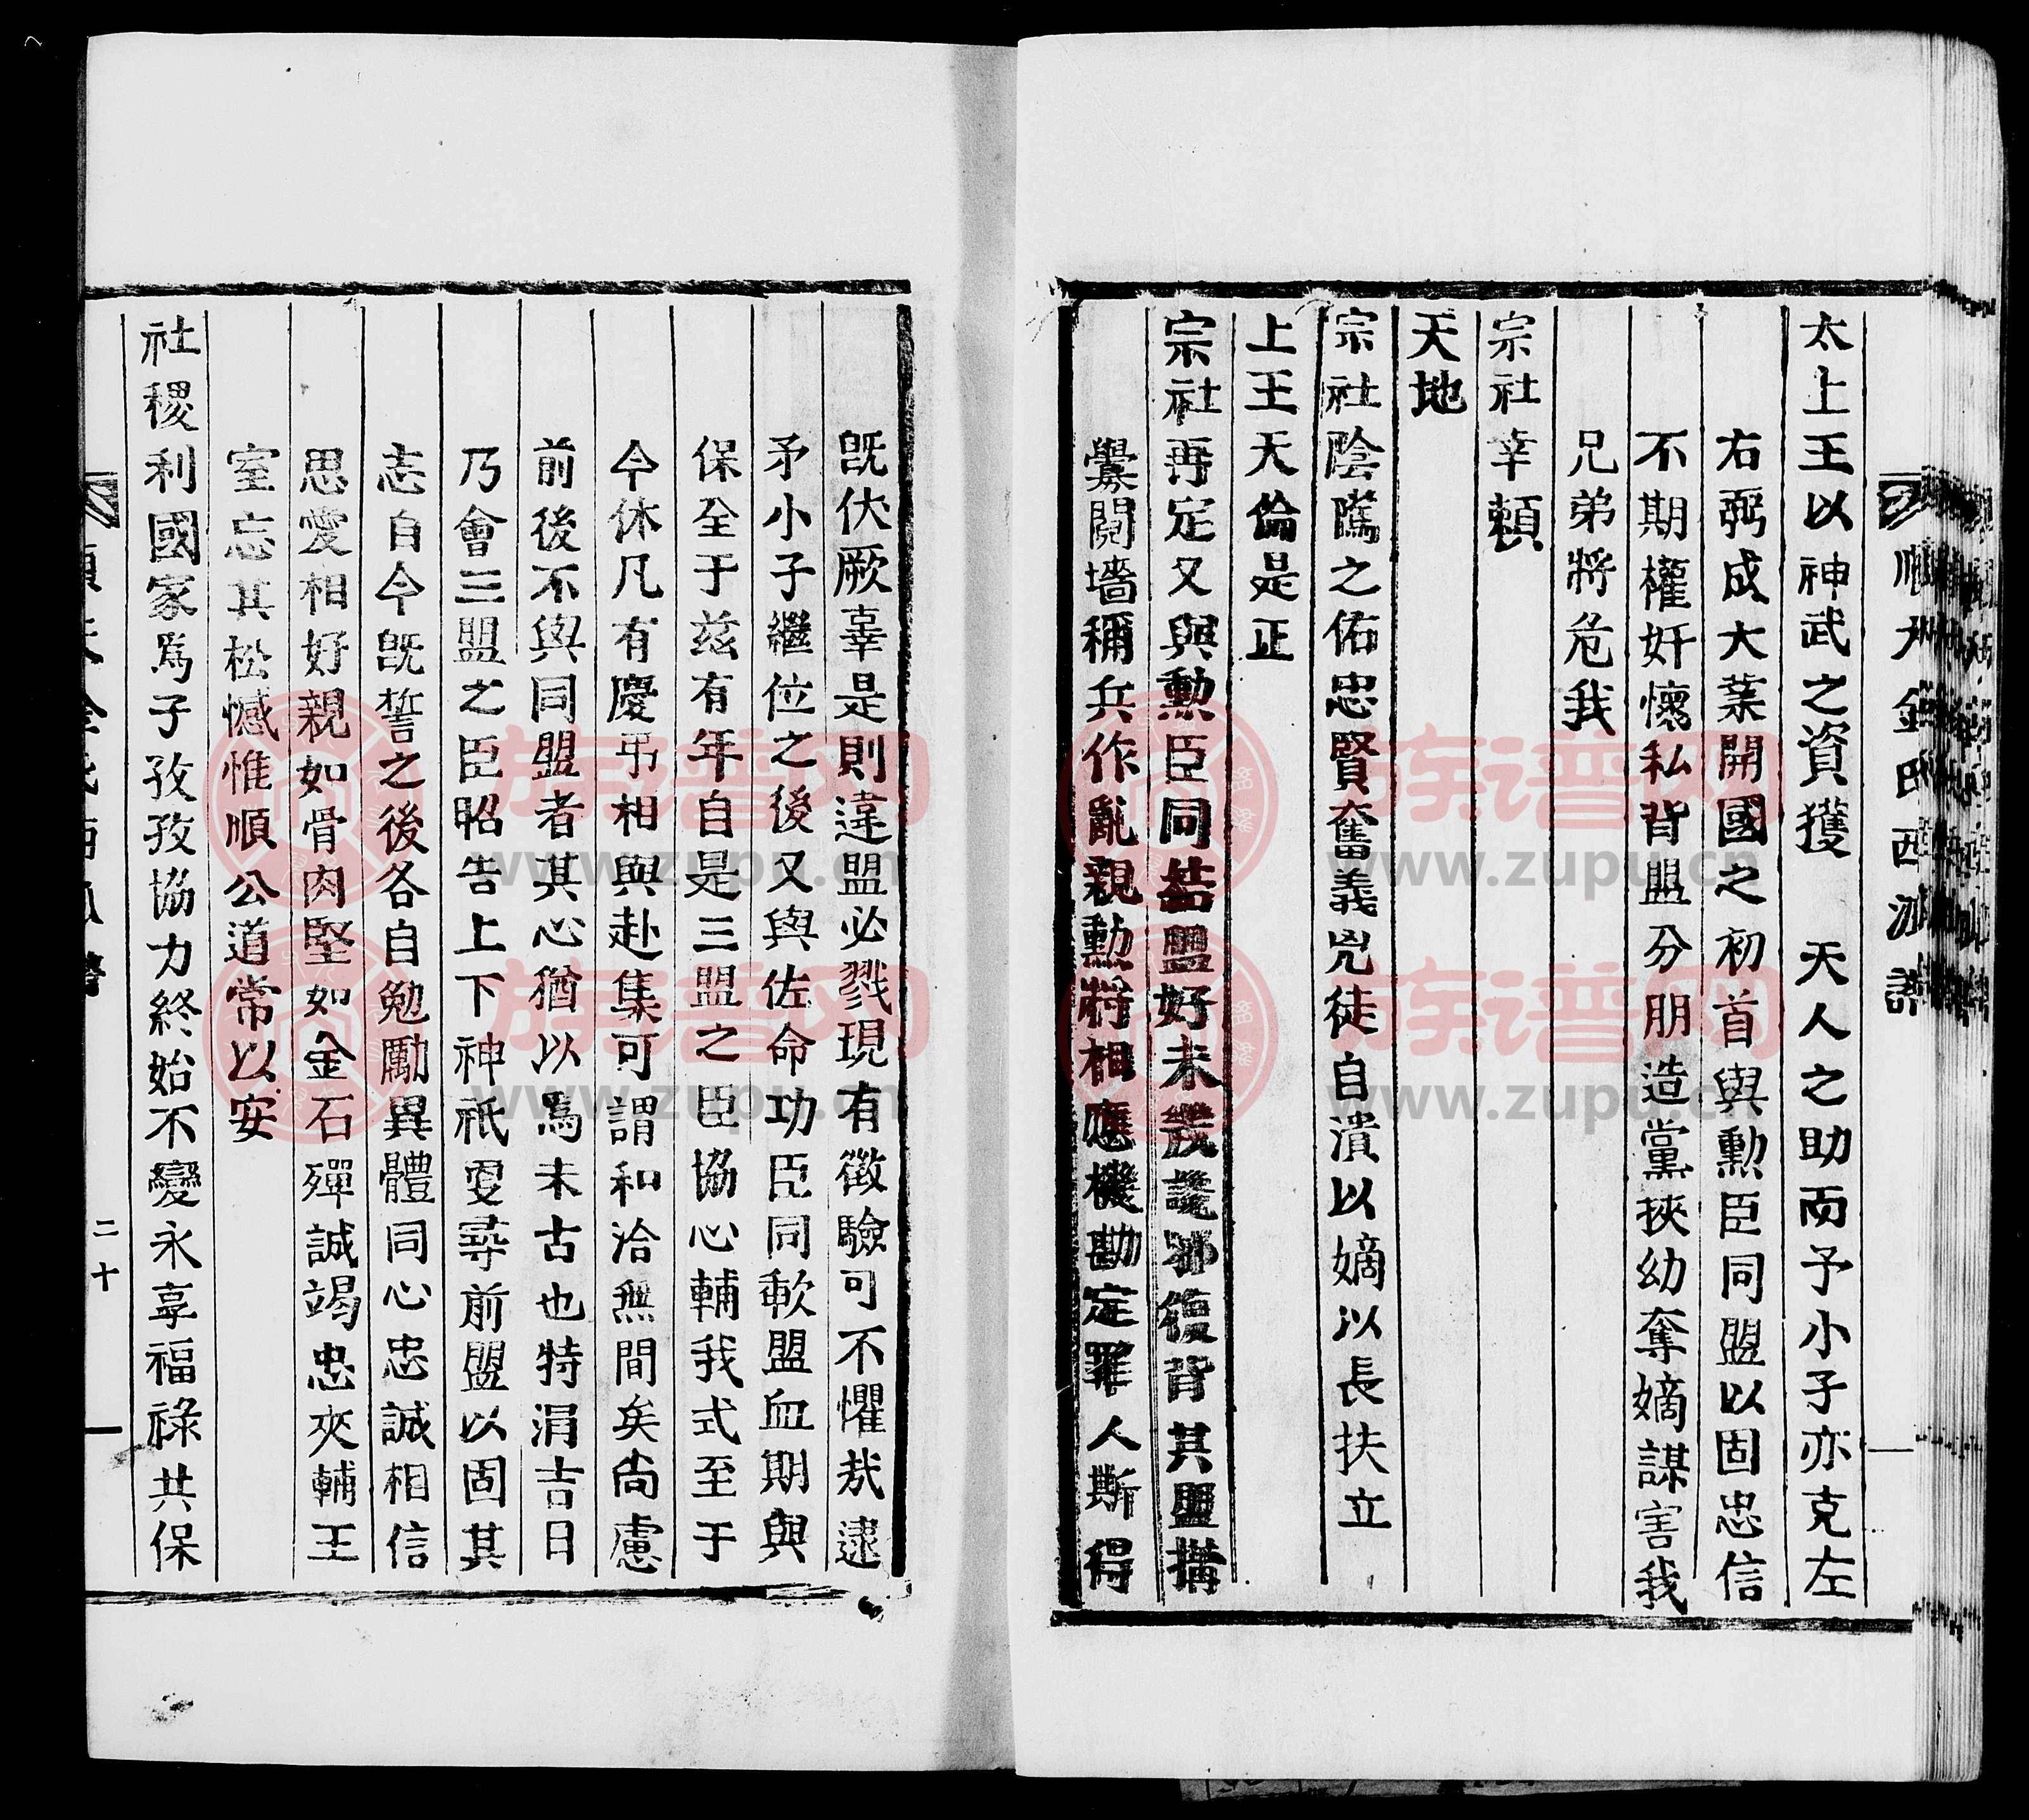 順天金氏西派譜
太上王以神武之資獲 天人之助而予小子亦克左
右弼成大業開國之初首與勳臣同盟以固忠信
不期權奸懷私背盟分朋造黨挾幼奪嫡謀害我
兄弟將危我
宗社幸賴
天地
宗社陰騭之佑忠賢奮義兇徒自潰以嫡以長扶立
上王天倫是正
宗社再定又與勳臣同結盟好未幾讒邪復背其盟搆
釁鬩墻稱兵作亂親勳將相應機勘定罪人斯得
旣伏厥辜是則違盟必戮現有徵驗可不懼哉逮
予小子繼位之後又與佐命功臣同歃盟血期與
保全于玆有年自是三盟之臣協心輔我式至于
今休凡有慶弔相與赴集可謂和洽無間矣尙慮
前後不與同盟者其心猶以爲未古也特涓吉日
乃會三盟之臣昭告上下神祇更尋前盟以固其
志自今旣誓之後各自勉勵異體同心忠誠相信
思愛相好親如骨肉堅如金石殫誠竭忠夾輔王
室忘其松憾惟順公道常以安
社稷利國家爲子孜孜協力終始不變永享福祿共保
二十
族谱网
www.zupu.cn
族谱网
www.zupu.cn
族谱网
www.zupu.cn
族谱网
www.zupu.cn